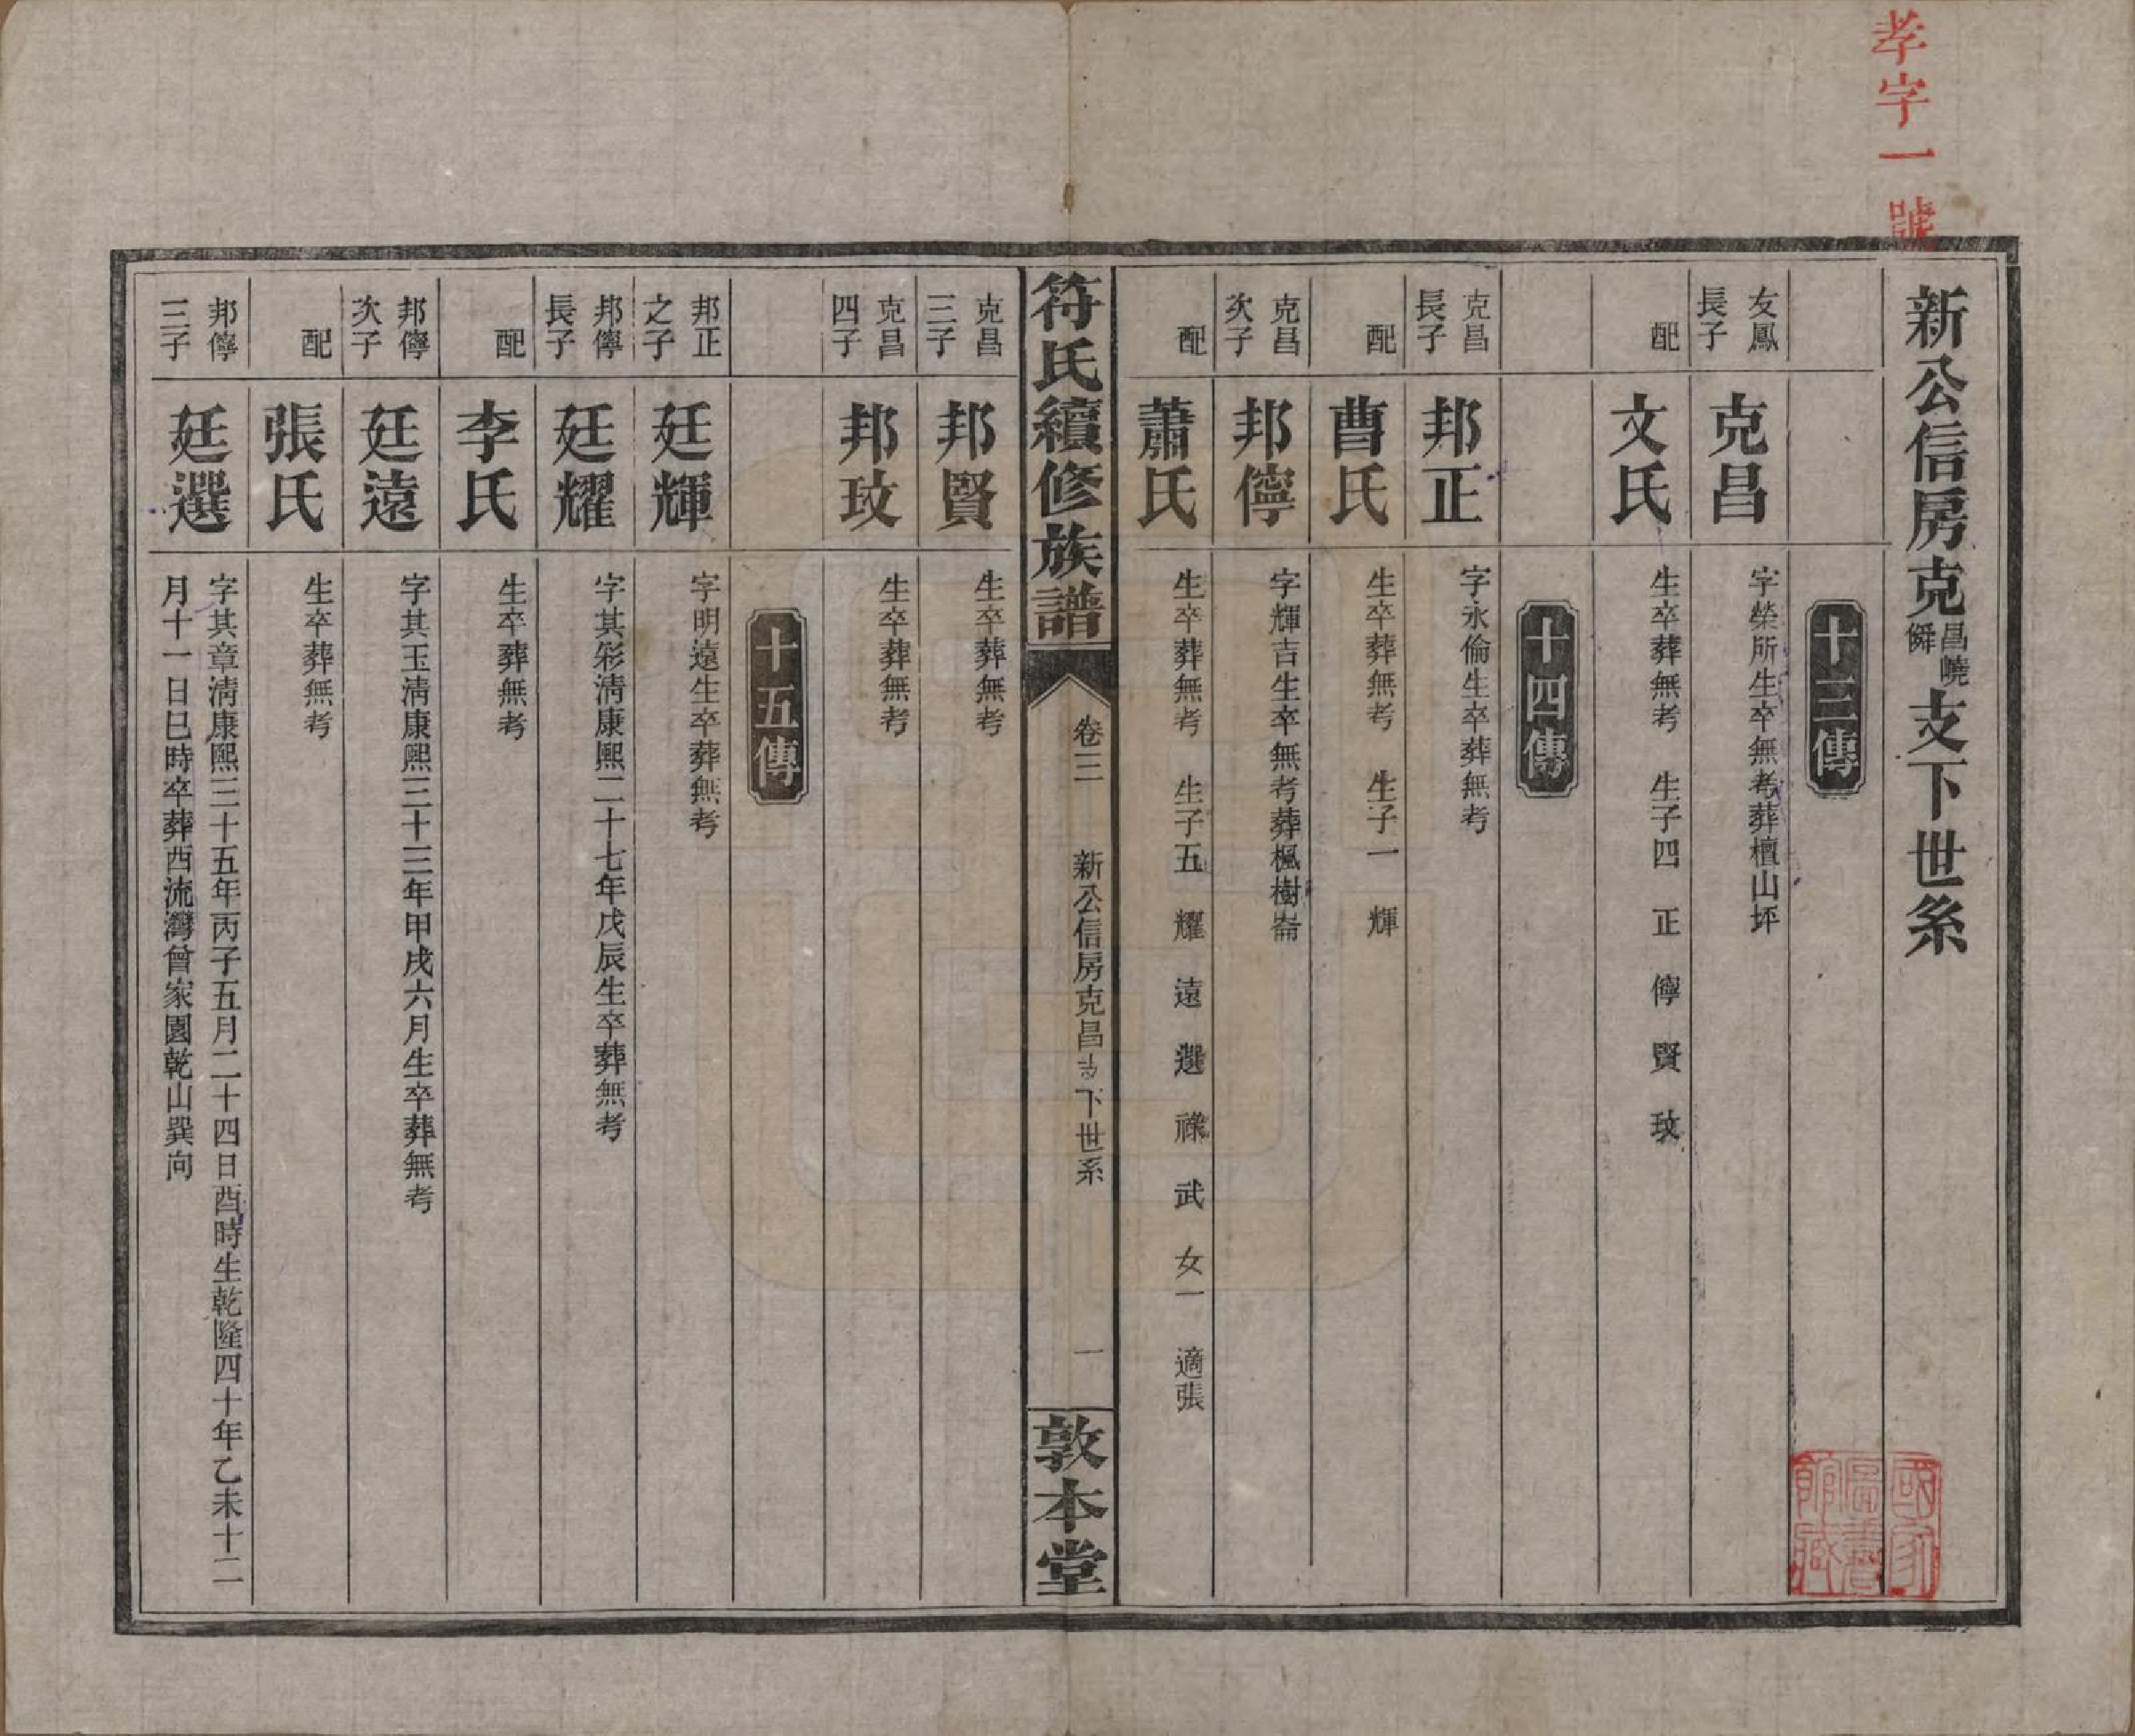 孝字一號
新公信房克昌嶢僢支下世系
十三傳
友鳳長子 克昌 字榮所生卒無考葬檀山坪
配 文氏 生卒葬無考 生子四 正 儜 賢 玟
十四傳
克昌長子 邦正 字永倫生卒葬無考
配 曹氏 生卒葬無考 生子一 輝
克昌次子 邦儜 字輝吉生卒無考葬楓樹崙
配 蕭氏 生卒葬無考 生子五 耀 遠 選 祿 武 女一 適張
符氏續修族譜 卷三 新公信房克昌支下世系 一 敦本堂
克昌三子 邦賢 生卒葬無考
克昌四子 邦玟 生卒葬無考
十五傳
邦正之子 廷輝 字明遠生卒葬無考
邦儜長子 廷耀 字其彩淸康熙二十七年戊辰生卒葬無考
配 李氏 生卒葬無考
邦儜次子 廷遠 字其玉淸康熙三十三年甲戌六月生卒葬無考
配 張氏 生卒葬無考
邦儜三子 廷選 字其章淸康熙三十五年丙子五月二十四日酉時生乾隆四十年乙未十二
月十一日巳時卒葬西流灣曾家園乾山巽向
國家圖書館藏